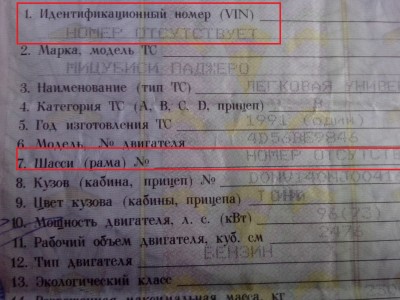 1. Идентификационный номер (VIN)
НОМЕР ОТСУТСТВУЕТ
2. Марка, модель ТС
МИЦУБИСИ ПАДЖЕРО
3. Наименование (тип ТС) ЛЕГКОВАЯ УНИВЕР
4. Категория ТС (А, В, С, D, прицеп) В
5. Год изготовления ТС 1991 (один)
6. Модель, № двигателя 4D56BE9846
7. Шасси (рама) № НОМЕР ОТСУТСТВ
8. Кузов (кабина, прицеп) №
9. Цвет кузова (кабины, прицепа)
10. Мощность двигателя, л. с. (кВт) 98(73)
11. Рабочий объем двигателя, куб. см 2476
12. Тип двигателя БЕНЗИН
13. Экологический класс
14. Разрешенная максимальная масса, кг